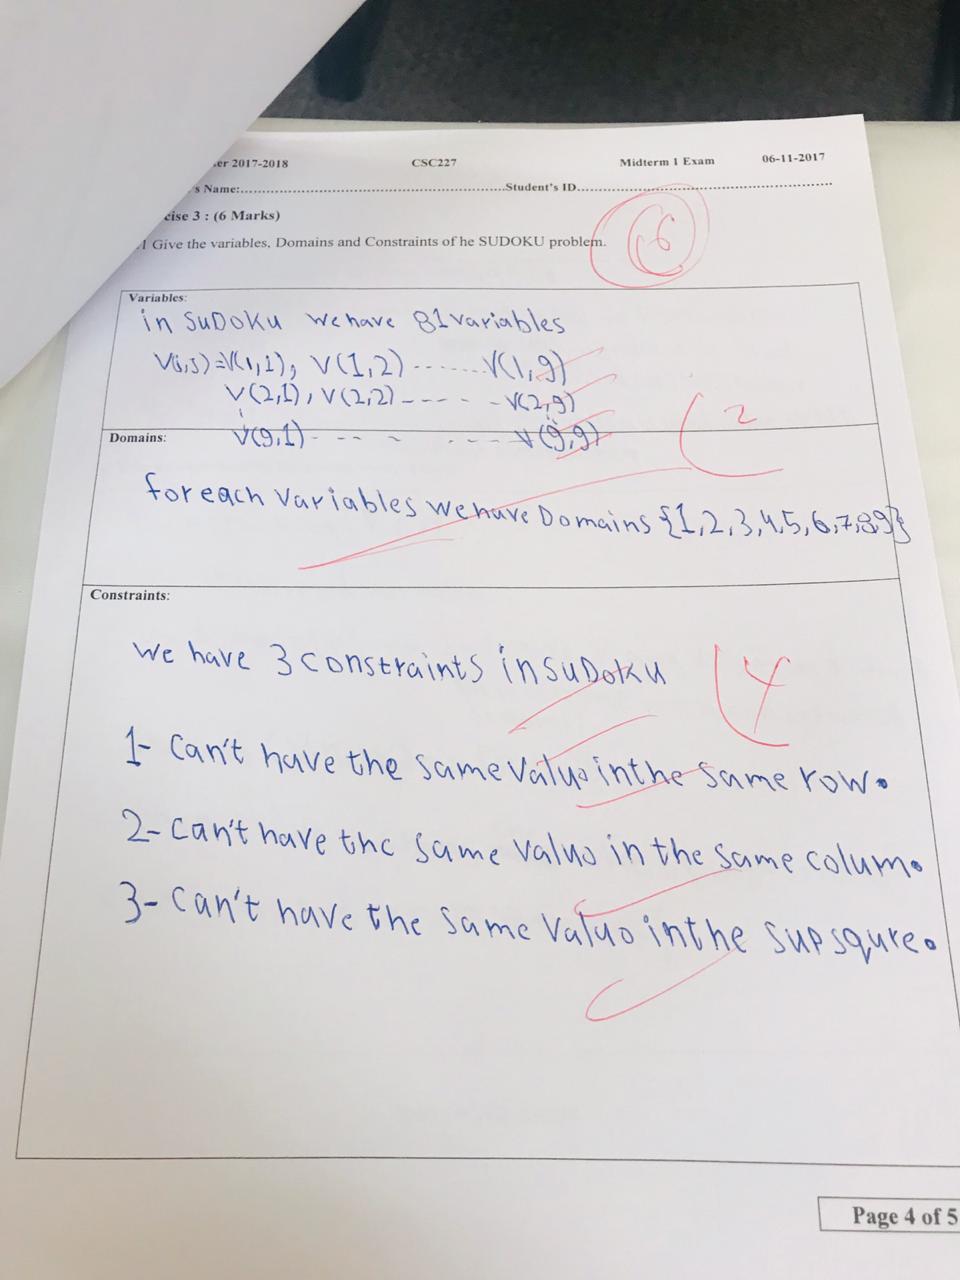 er 2017-2018 CSC227 Midterm 1 Exam 06-11-2017
s Name:..........Student's ID..........
cise 3 : (6 Marks)
.1 Give the variables, Domains and Constraints of he SUDOKU problem.
6
Variables:
in SuDoKu we have 81 variables
V(i,j)=V(1,1), V(1,2) ....... V(1,9)
V(2,1), V(2,2) - - - - - V(2,9)
V(9,1) - - - - - - - V(9,9)
2
Domains:
for each variables we have Domains {1,2,3,4,5,6,7,8,9}
Constraints:
we have 3 constraints in suDoku
4
1- Can't have the same value in the same row.
2- can't have the same value in the same colum.
3- can't have the same value in the sup squre.
Page 4 of 5